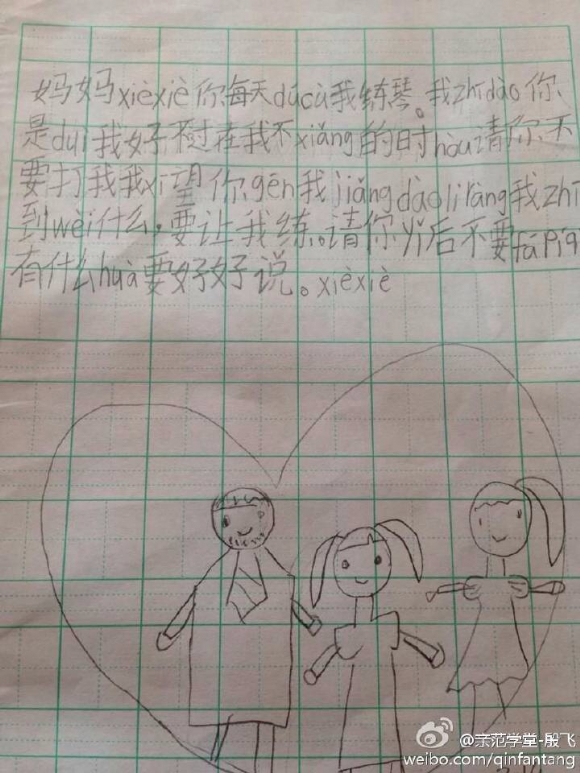 妈妈xièxiè你每天dūcù我练琴。我zhīdào你
是duì我好在我不xiǎng的时hòu请你不
要打我我xī望你gēn我jiǎngdàolǐràng我zhī
到wèi什么,要让我练。请你yǐ后不要fāpíq
有什么huà要好好说。xièxiè
@亲范学堂-殷飞
weibo.com/qinfantang